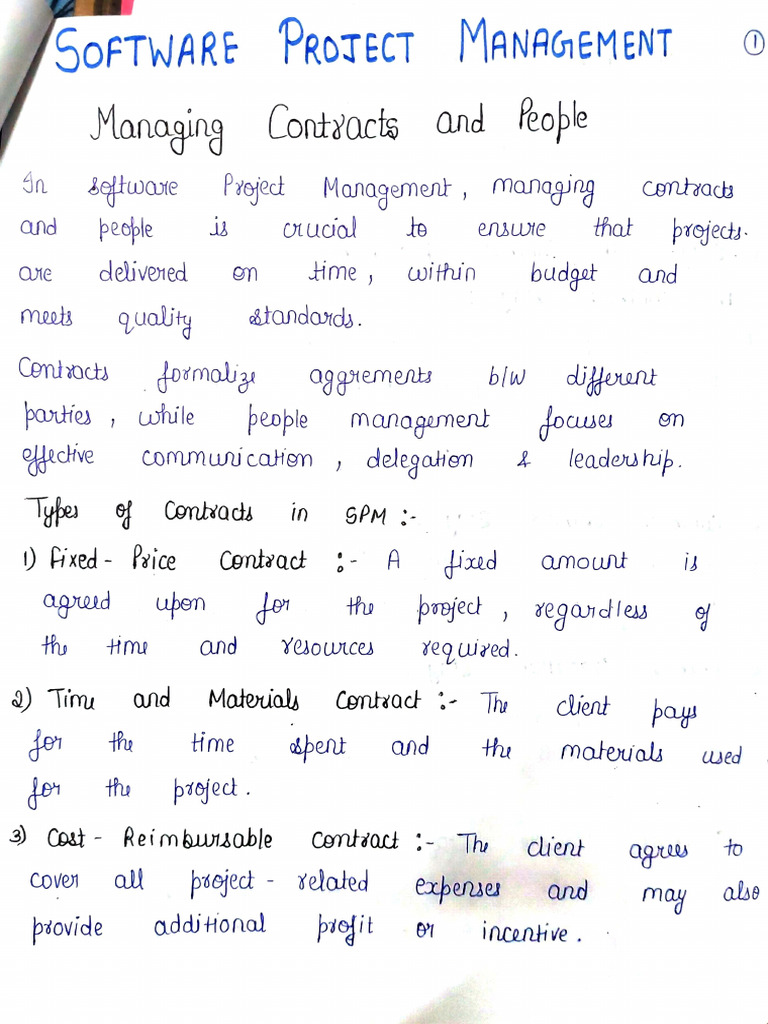 SOFTWARE PROJECT MANAGEMENT ①
Managing Contracts and People
In software Project Management, managing contracts
and people is crucial to ensure that projects.
are delivered on time, within budget and
meets quality standards.
Contracts formalize aggrements b/w different
parties, while people management focuses on
effective communication, delegation & leadership.
Types of Contracts in SPM :-
1) Fixed-Price Contract :- A fixed amount is
agreed upon for the project, regardless of
the time and resources required.
2) Time and Materials Contract :- The client pays
for the time spent and the materials used
for the project.
3) Cost-Reimbursable Contract :- The client agrees to
cover all project-related expenses and may also
provide additional profit or incentive.